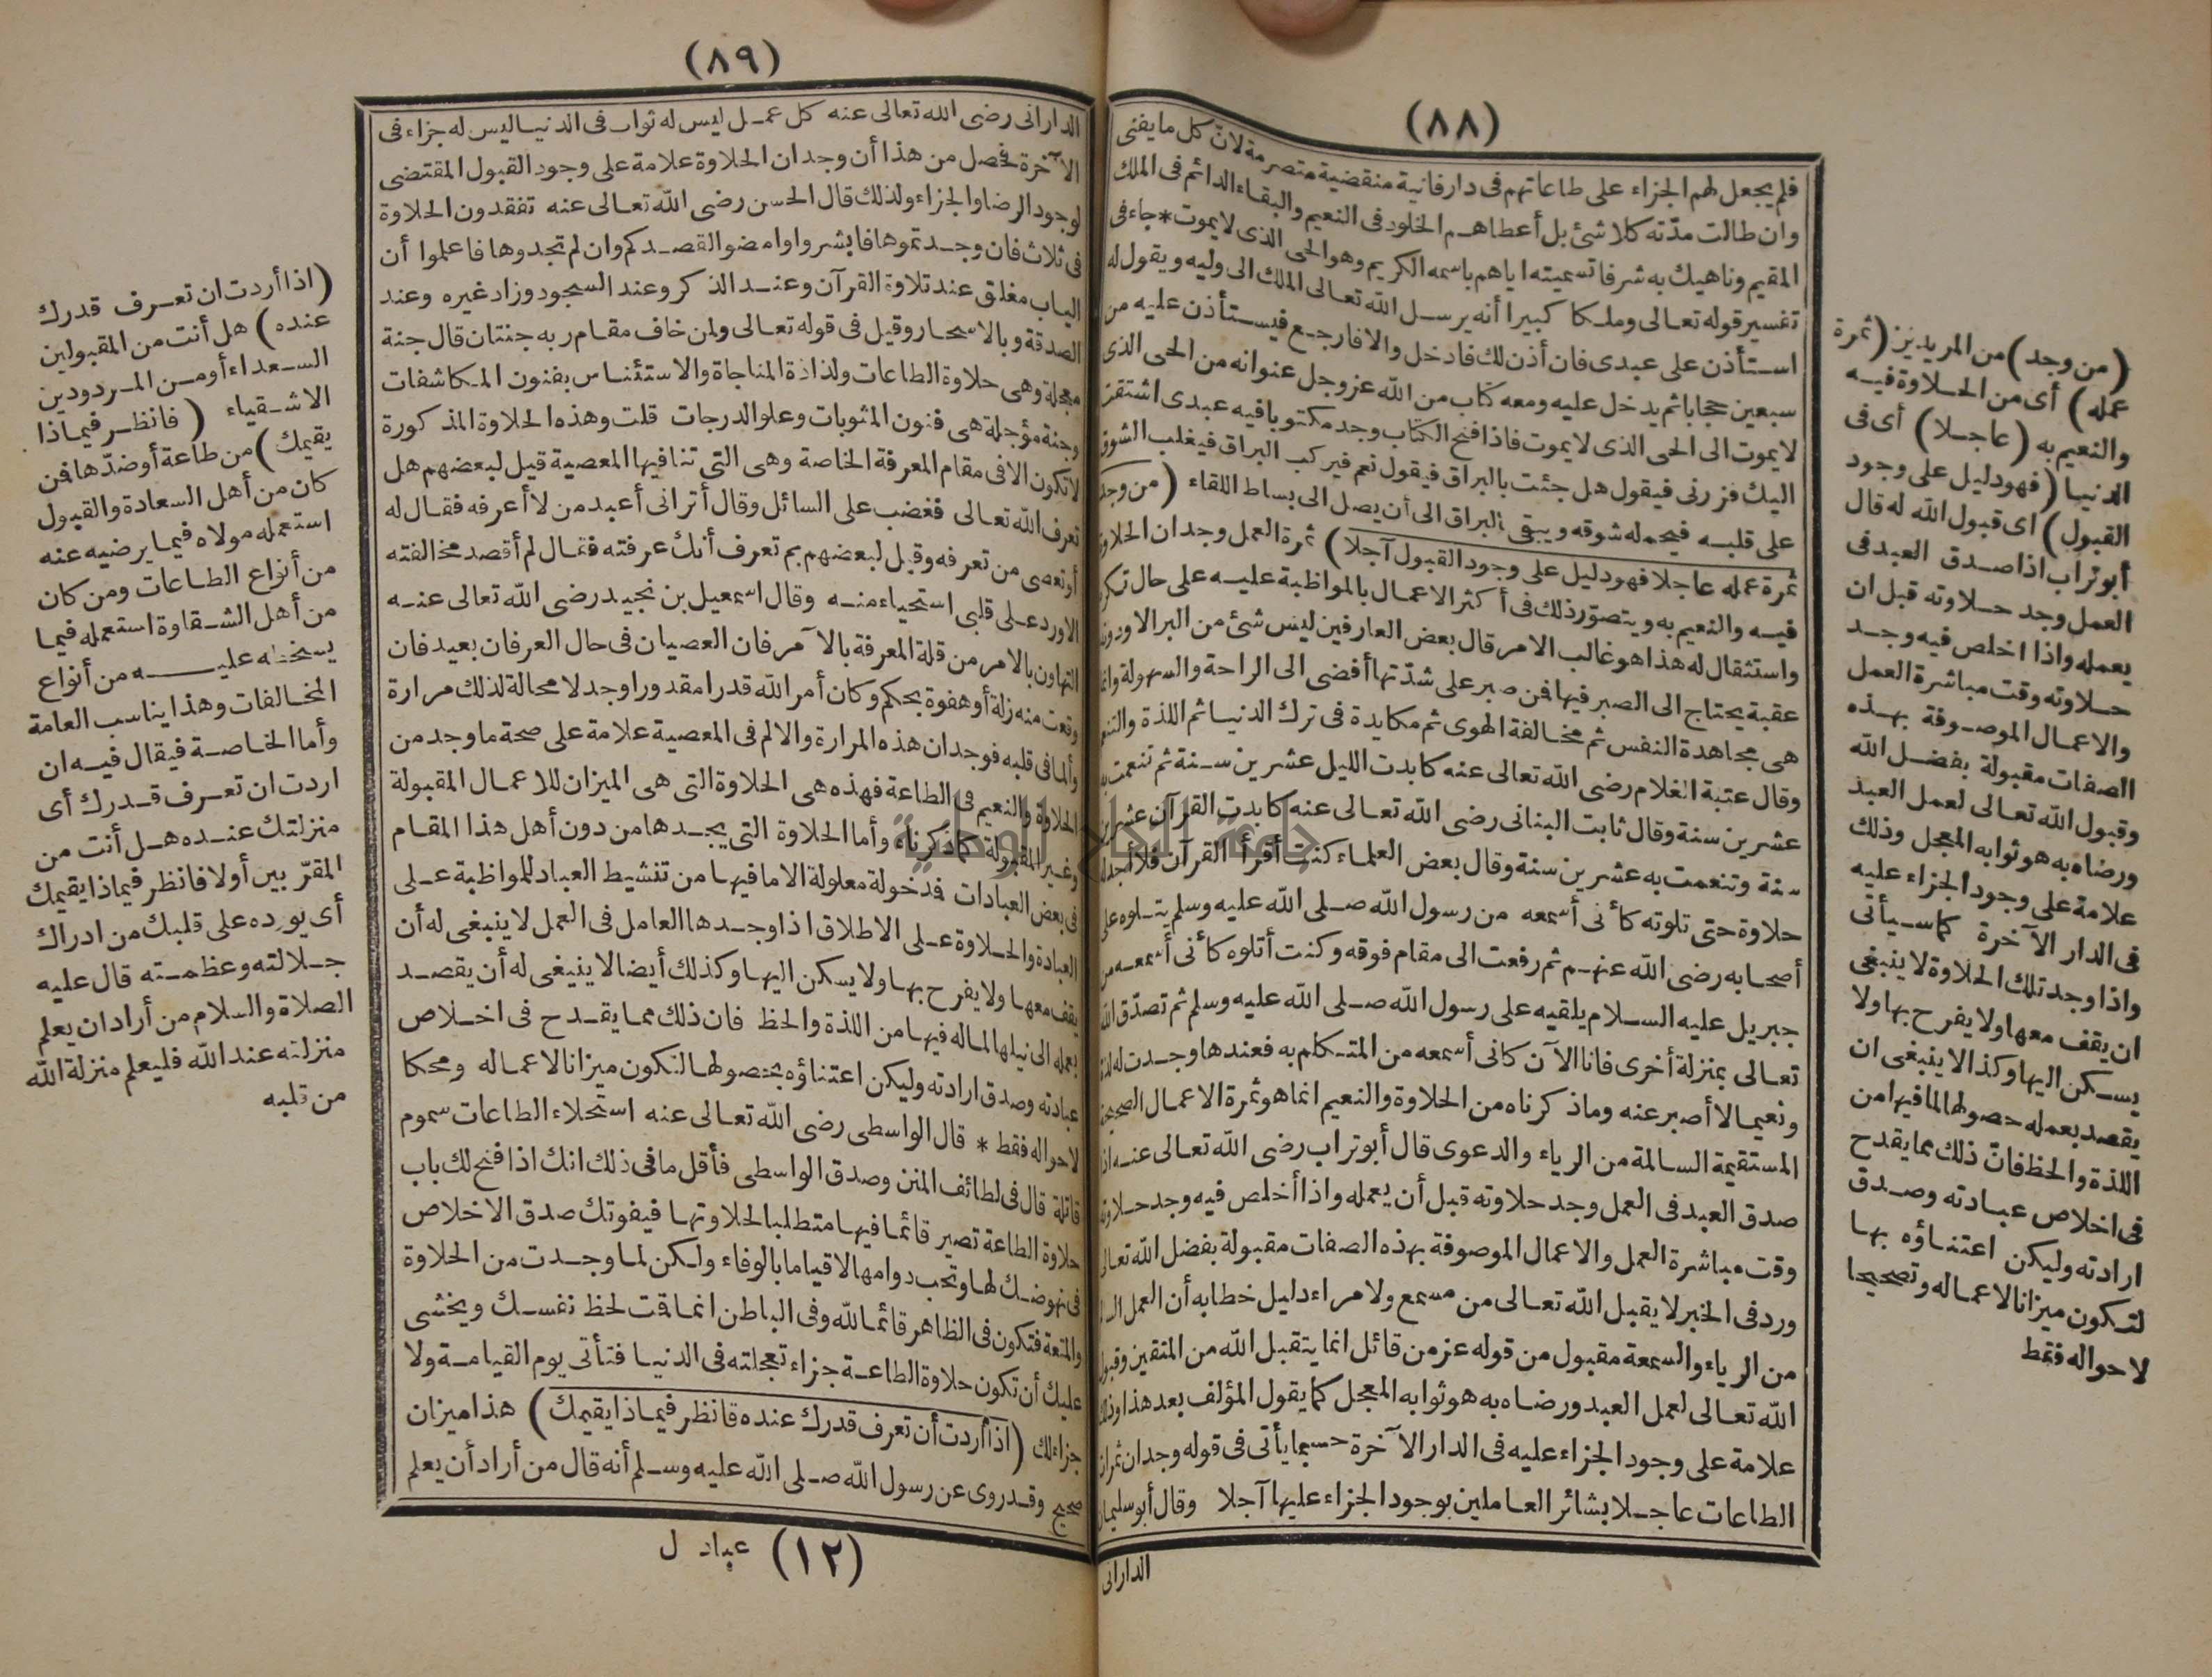 (٨٨)
فلم يجعل لهم الجزاء على طاعاتهم فى دار فانية منقضية متصرمة لانّ كل ما يفنى
وان طالت مدّته كلا شئ بل أعطاهم الخلود فى النعيم والبقاء الدائم فى الملك
المقيم وناهيك به شرفا تسميته اياهم باسمه الكريم وهو الحى الذى لا يموت * جاء فى
تفسير قوله تعالى وملكا كبيرا أنه يرسل الله تعالى الملك الى وليه ويقول له
استأذن على عبدى فان أذن لك فادخل والا فارجع فيستأذن عليه من
سبعين حجابا ثم يدخل عليه ومعه كتاب من الله عز وجل عنوانه من الحى الذى
لا يموت الى الحى الذى لا يموت فاذا فتح الكتاب وجد مكتوبا فيه عبدى اشتقت
اليك فزرنى فيقول هل جئت بالبراق فيقول نعم فيركب البراق فيغلب الشوق
على قلبه فيحمله شوقه ويبقى البراق الى أن يصل الى بساط اللقاء (من وجد
ثمرة عمله عاجلا فهو دليل على وجود القبول آجلا) ثمرة العمل وجدان الحلاوة
فيه والنعيم به ويتصوّر ذلك فى أكثر الاعمال بالمواظبة عليه على حال تكره
واستثقال له هذا هو غالب الامر قال بعض العارفين ليس شئ من البر الا ودونه
عقبة يحتاج الى الصبر فيها فمن صبر على شدّتها أفضى الى الراحة والسهولة وانما
هى مجاهدة النفس ثم مخالفة الهوى ثم مكابدة فى ترك الدنيا ثم اللذة والتنعم
وقال عتبة الغلام رضى الله تعالى عنه كابدت الليل عشرين سنة ثم تنعمت به
عشرين سنة وقال ثابت البنانى رضى الله تعالى عنه كابدت القرآن عشرين
سنة وتنعمت به عشرين سنة وقال بعض العلماء كنت أقرأ القرآن فلا أجد له
حلاوة حتى تلوته كأنى أسمعه من رسول الله صلى الله عليه وسلم يتلوه على
أصحابه رضى الله عنهم ثم رفعت الى مقام فوقه وكنت أتلوه كأنى أسمعه من
جبريل عليه السلام يلقيه على رسول الله صلى الله عليه وسلم ثم تصدّق الله
تعالى بمنزلة أخرى فانا الآن كانى أسمعه من المتكلم به فعندها وجدت له لذة
ونعيما لا أصبر عنه وما ذكرناه من الحلاوة والنعيم انما هو ثمرة الاعمال الصحيحة
المستقيمة السالمة من الرياء والدعوى قال أبو تراب رضى الله تعالى عنه اذا
صدق العبد فى العمل وجد حلاوته قبل أن يعمله واذا أخلص فيه وجد حلاوته
وقت مباشرة العمل والاعمال الموصوفة بهذه الصفات مقبولة بفضل الله تعالى
ورد فى الخبر لا يقبل الله تعالى من مسمع ولا مراء دليل خطابه أن العمل
من الرياء والسمعة مقبول من قوله عز من قائل انما يتقبل الله من المتقين وقبول
الله تعالى لعمل العبد ورضاه به هو ثوابه المعجل كما يقول المؤلف بعد هذا وذلك
علامة على وجود الجزاء عليه فى الدار الآخرة حسبما يأتى فى قوله وجدان ثمرات
الطاعات عاجلا بشائر العاملين بوجود الجزاء عليها آجلا وقال أبو سليمان
الدارانى
(من وجد) من المريدين (ثمرة
عمله) أى من الحلاوة فيه
والنعيم به (عاجلا) أى فى
الدنيا (فهو دليل على وجود
القبول) اى قبول الله له قال
أبو تراب اذا صدق العبد فى
العمل وجد حلاوته قبل ان
يعمله واذا اخلص فيه وجد
حلاوته وقت مباشرة العمل
والاعمال الموصوفة بهذه
الصفات مقبولة بفضل الله
وقبول الله تعالى لعمل العبد
ورضاه به هو ثوابه المعجل وذلك
علامة على وجود الجزاء عليه
فى الدار الآخرة كما سيأتى
واذا وجد تلك الحلاوة لا ينبغى
ان يقف معها ولا يفرح بها ولا
يسكن اليها وكذا لا ينبغى ان
يقصد بعمله حصولها لما فيها من
اللذة والحظ فانّ ذلك مما يقدح
فى اخلاص عبادته وصدق
ارادته وليكن اعتناؤه بها
لتكون ميزانا لاعماله وتصحيحا
لاحواله فقط
(٨٩)
الدارانى رضى الله تعالى عنه كل عمل ليس له ثواب فى الدنيا ليس له جزاء فى
الآخرة فحصل من هذا أن وجدان الحلاوة علامة على وجود القبول المقتضى
لوجود الرضا والجزاء ولذلك قال الحسن رضى الله تعالى عنه تفقدون الحلاوة
فى ثلاث فان وجدتموها فابشروا وامضوا لقصدكم وان لم تجدوها فاعلموا أن
الباب مغلق عند تلاوة القرآن وعند الذكر وعند السجود وزاد غيره وعند
الصدقة وبالاسحار وقيل فى قوله تعالى ولمن خاف مقام ربه جنتان قال جنة
معجلة وهى حلاوة الطاعات ولذاذة المناجاة والاستئناس بفنون المكاشفات
وجنة مؤجلة هى فنون المثوبات وعلو الدرجات قلت وهذه الحلاوة المذكورة
لا تكون الا فى مقام المعرفة الخاصة وهى التى تنافيها المعصية قيل لبعضهم هل
تعرف الله تعالى فغضب على السائل وقال أترانى أعبد من لا أعرفه فقال له
أوتعصى من تعرفه وقيل لبعضهم بم تعرف أنك عرفته فقال لم أقصد مخالفته
الا ورد على قلبى استحياء منه وقال اسمعيل بن نجيد رضى الله تعالى عنه
التهاون بالامر من قلة المعرفة بالآمر فان العصيان فى حال العرفان بعيد فان
وقعت منه زلة أو هفوة بحكم وكان أمر الله قدرا مقدورا وجد لا محالة لذلك مرارة
وألما فى قلبه فوجدان هذه المرارة والالم فى المعصية علامة على صحة ما وجد من
الحلاوة والنعيم فى الطاعة فهذه هى الحلاوة التى هى الميزان للاعمال المقبولة
وغير المقبولة كما ذكرناه وأما الحلاوة التى يجدها من دون أهل هذا المقام
فى بعض العبادات فدخولة معلولة الا ما فيها من تنشيط العباد للمواظبة على
العبادة والحلاوة على الاطلاق اذا وجدها العامل فى العمل لا ينبغى له أن
يقف معها ولا يفرح بها ولا يسكن اليها وكذلك أيضا لا ينبغى له أن يقصد
بعمله الى نيلها لما له فيها من اللذة والحظ فان ذلك مما يقدح فى اخلاص
عبادته وصدق ارادته وليكن اعتناؤه بحصولها لتكون ميزانا لاعماله ومحكا
لاحواله فقط * قال الواسطى رضى الله تعالى عنه استحلاء الطاعات سموم
قاتلة قال فى لطائف المنن وصدق الواسطى فأقل ما فى ذلك انك اذا فتح لك باب
حلاوة الطاعة تصير قائما فيها متطلبا لحلاوتها فيفوتك صدق الاخلاص
فى نهوضك لها وتحب دوامها لا قياما بالوفاء ولكن لما وجدت من الحلاوة
والمتعة فتكون فى الظاهر قائما لله وفى الباطن انما قت لحظ نفسك ويخشى
عليك أن تكون حلاوة الطاعة جزاء تعجلته فى الدنيا فتأتى يوم القيامة ولا
جزاء لك (اذا أردت أن تعرف قدرك عنده فانظر فيماذا يقيمك) هذا ميزان
صحيح وقد روى عن رسول الله صلى الله عليه وسلم أنه قال من أراد أن يعلم
(١٢) عباد ل
(اذا أردت ان تعرف قدرك
عنده) هل أنت من المقبولين
السعداء أو من المردودين
الاشقياء (فانظر فيماذا
يقيمك) من طاعة أو ضدّها فن
كان من أهل السعادة والقبول
استعمله مولاه فيما يرضيه عنه
من أنواع الطاعات ومن كان
من أهل الشقاوة استعمله فيما
يسخطه عليه من أنواع
المخالفات وهذا يناسب العامة
وأما الخاصة فيقال فيه ان
اردت ان تعرف قدرك أى
منزلتك عنده هل أنت من
المقرّبين أو لا فانظر فيماذا يقيمك
أى يورده على قلبك من ادراك
جلالته وعظمته قال عليه
الصلاة والسلام من أراد ان يعلم
منزلته عند الله فليعلم منزلة الله
من قلبه
جامعة النجاح الوطنية